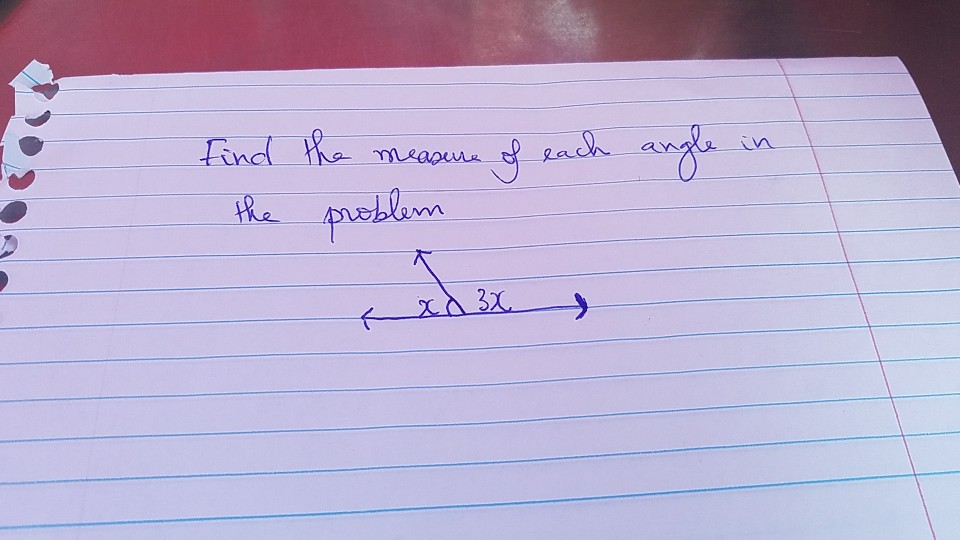 Find the measure of each angle in
the problem
x 3x